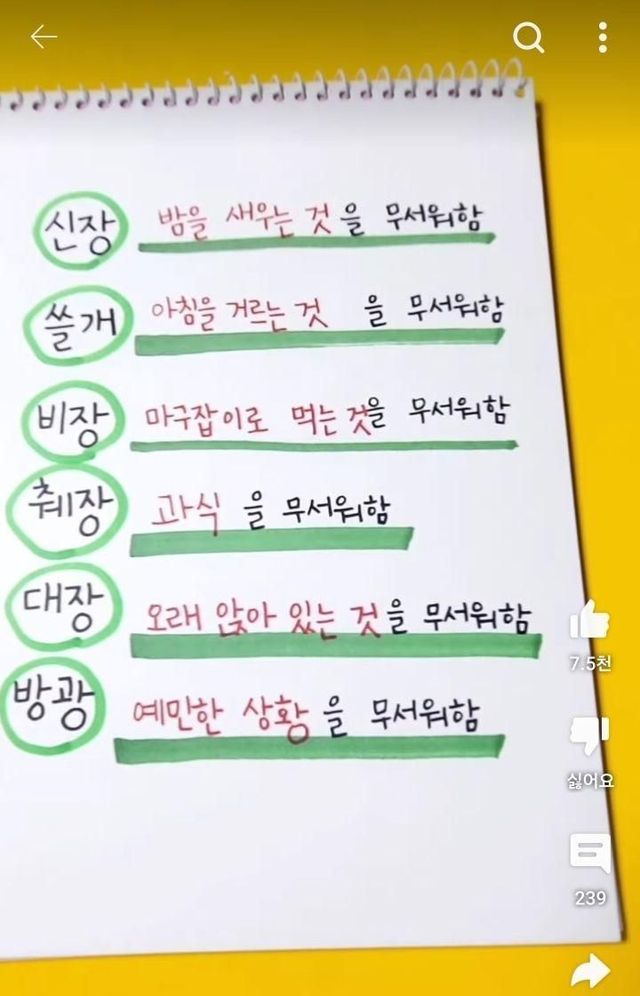 신장 밤을 새우는 것을 무서워함
쓸개 아침을 거르는 것 을 무서워함
비장 마구잡이로 먹는것을 무서워함
췌장 과식 을 무서워함
대장 오래 앉아 있는 것을 무서워함
방광 예민한 상황을 무서워함
7.5천
싫어요
239